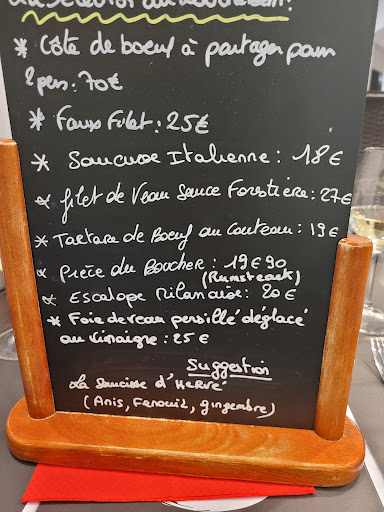 * Côte de boeuf à partager pour
2 pers: 70€
* Faux Filet: 25€
* Saucisse Italienne: 18€
* filet de Veau Sauce Forestière: 27€
* Tartare de Boeuf au Couteau: 19€
* Pièce du Boucher: 19€90
(Rumsteack)
* Escalope Milanaise: 20€
* Foie de veau persillé déglacé
au vinaigre: 25€
Suggestion
La Saucisse d'HERVÉ
(Anis, Fenouil, gingembre)